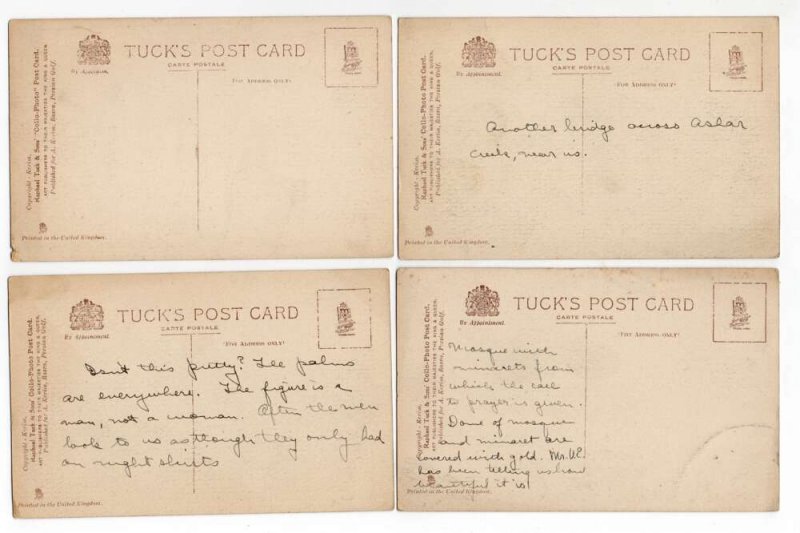 TUCK'S POST CARD
CARTE POSTALE
By Appointment.
(FOR ADDRESS ONLY)
Copyright - Kerim.
Raphael Tuck & Sons' "Collo-Photo" Post Card.
ART PUBLISHERS TO THEIR MAJESTIES THE KING & QUEEN.
Published for A. Kerim, Basra, Persian Gulf.
Printed in the United Kingdom.
TUCK'S POST CARD
CARTE POSTALE
By Appointment.
(FOR ADDRESS ONLY)
Copyright - Kerim.
Raphael Tuck & Sons' Collo-Photo Post Card.
ART PUBLISHERS TO THEIR MAJESTIES THE KING & QUEEN.
Published for A. Kerim, Basra, Persian Gulf.
Another bridge across Ashar
Creek, near us.
Printed in the United Kingdom.
TUCK'S POST CARD
CARTE POSTALE
By Appointment.
(FOR ADDRESS ONLY)
Copyright - Kerim.
Raphael Tuck & Sons' Collo-Photo Post Card.
ART PUBLISHERS TO THEIR MAJESTIES THE KING & QUEEN.
Published for A. Kerim, Basra, Persian Gulf.
Isn't this pretty? The palms
are everywhere. The figure is a
man, not a woman. Often the men
look to us as though they only had
on night shirts
Printed in the United Kingdom.
TUCK'S POST CARD
CARTE POSTALE
By Appointment.
(FOR ADDRESS ONLY)
Copyright - Kerim.
Raphael Tuck & Sons' Collo-Photo Post Card.
ART PUBLISHERS TO THEIR MAJESTIES THE KING & QUEEN.
Published for A. Kerim, Basra, Persian Gulf.
Mosque with
minarets from
which the call
to prayer is given.
Dome of mosque
and minaret are
covered with gold. Mr.
has been telling us how
beautiful it is
Printed in the United Kingdom.